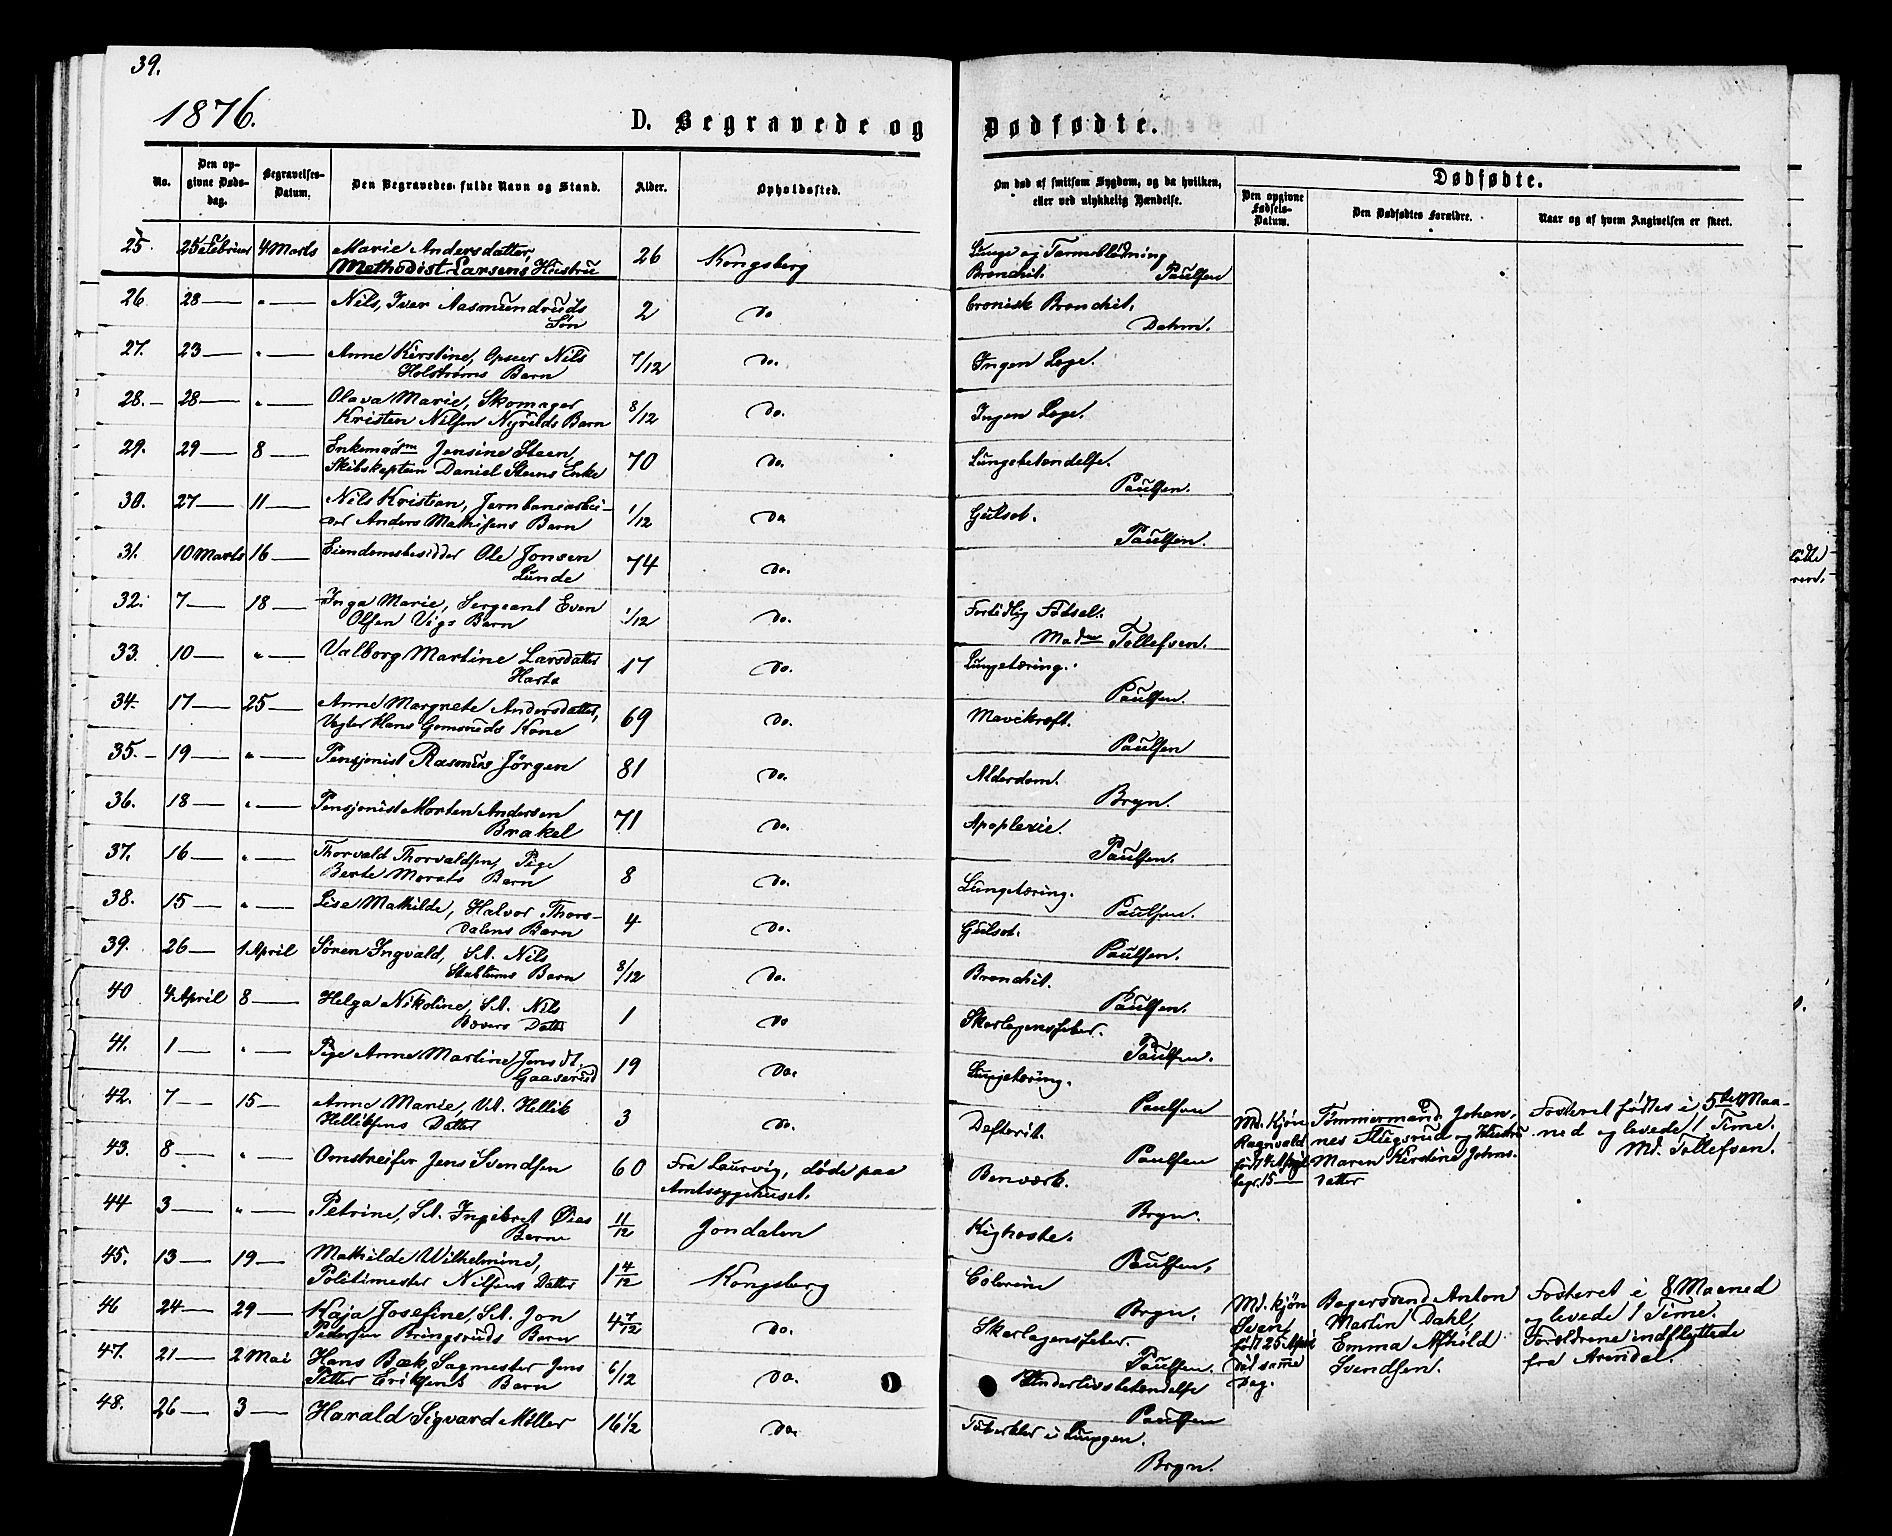 39.
1876.
D. Begravede og Dødfødte.
No.
Den opgivne Dødsdag.
Begravelses-Datum.
Den Begravedes fulde Navn og Stand.
Alder.
Opholdssted.
Om død af smitsom Sygdom, og da hvilken, eller ved ulykkelig Hændelse.
Dødfødte.
Den opgivne Fødsels-Datum.
Den Dødfødtes Forældre.
Naar og af hvem Angivelsen er skeet.
25 25 Februar 4 Marts Marie Andersdatter, 26 Kongsberg Lunge og Tarmeblødning
Methodist Larsens Hustru Bronchit. Paulsen
26. 28 — " — Nils, Iver Aasmundruds 2 do Cronisk Bronchit.
Søn Dahm.
27. 23 — " — Anne Kirstine, Opseer Nils 7/12 do. Ingen Læge.
Holstrøms Barn
28. 28 — " — Olava Marie, Skomager 8/12 do. Ingen Læge.
Kristen Nilsen Barn
29. 29 — 8 — Enkemadm Jensine Steen, 70 do. Lungebetændelse.
Skibskaptein Daniel Steens Enke Paulsen.
30. 27 — 11 — Nils Kristian, Jernbanearbei- 1/12 do Gulsot.
der Anders Mathisens Barn Paulsen.
31. 10 Marts 16 — Eiendomsbesidder Ole Jonsen 74 do.
Lunde
32. 7 — 18 — Inga Marie, Sergeant Even 1/12 do. Fortidlig Fødsel.
Olsen Vigs Barn Madm Tollefsen.
33. 10 — " — Valborg Martine Larsdatter 17 do. Lungetæring.
Paulsen.
34. 17 — 25 — Anne Margrete Andersdatter, 69 do. Mavekræft.
Vegter Hans Gomsruds Kone Paulsen
35. 19 — " — Pensjonist Rasmus Jørgen 81 do. Alderdom.
Bryn.
36. 18 — " — Pensjonist Morten Andersen 71 do. Apoplexie.
Brakel Paulsen.
37. 16 — " — Thorvald Thorvaldsen, Pige 8 do. Lungetæring.
Berte Morats Barn Paulsen.
38. 15 — " — Lise Mathilde, Halvor Thors- 4 do. Gulsot.
dalens Barn Paulsen.
39. 26 — 1 April Søren Ingvald, S.A. Nils 8/12 do. Bronchit.
Barn Paulsen.
40 4 April 8 — Helga Nikoline, S.A. Nils 1 do Skarlagensfeber.
Bævers Datter Paulsen.
41. 1 — " — Pige Anne Martine Jensdt. 19 do. Lungetæring.
Gaaserud Paulsen
42. 7 — 15 — Anne Marie, Hellik 3 do. Defterit.
Helliksens Datter Paulsen
Md. Kjøn Ragnvald født 4 April begr. 15 —
Tømmermand Johan-
nes Stugsrud og Hustru
Maren Kirstine Johns-
datter
Fosteret fødtes i 5te Maa-
ned og levede 1 Time.
Md. Tollefsen.
43. 8 — " — Omstreifer Jens Svendsen 60 Fra Laurvig, døde paa Benværk.
Amtssygehuset. Bryn.
44 3 — " — Petrine, S.A. Ingebret Øies 11/12 Jondalen Kighoste.
Barn Paulsen.
45. 13 — 19 — Mathilde Wilhelmine, 1 4/12 Kongsberg Colerine
Politimester Nilsens Datter Bryn.
46 24 — 29 — Kaja Josefine, S.A. Jon 4 7/12 do. Skarlagensfeber.
Pedersen Bringsruds Barn Paulsen.
Md. kjøn Svend født 25 April død samme Dag.
Bagersvend Anton
Martin Dahl,
Emma Afhild
Svendsen.
Fosteret i 8 Maaned
og levede 1 Time.
Forældrene indflyttede
fra Arendal.
47. 21 — 2 Mai Hans Bæk, Sagmester Jens 6/12 do. Underlivsbetændelse
Petter Eriksens Barn Paulsen
48. 26 — 3 — Harald Sigvard Møller 16 1/2 do. Tuberkler i Lungen.
Bryn.